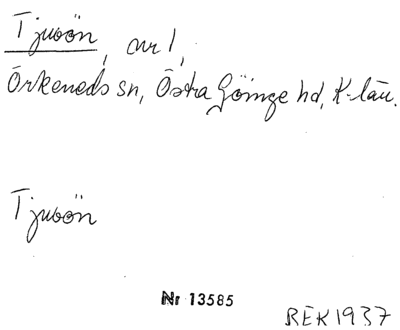 Tjuvön, nr 1,
Örkeneds sn, Östra Göinge hd, K-län.
Tjuvön
Nr 13585
BEK 1937